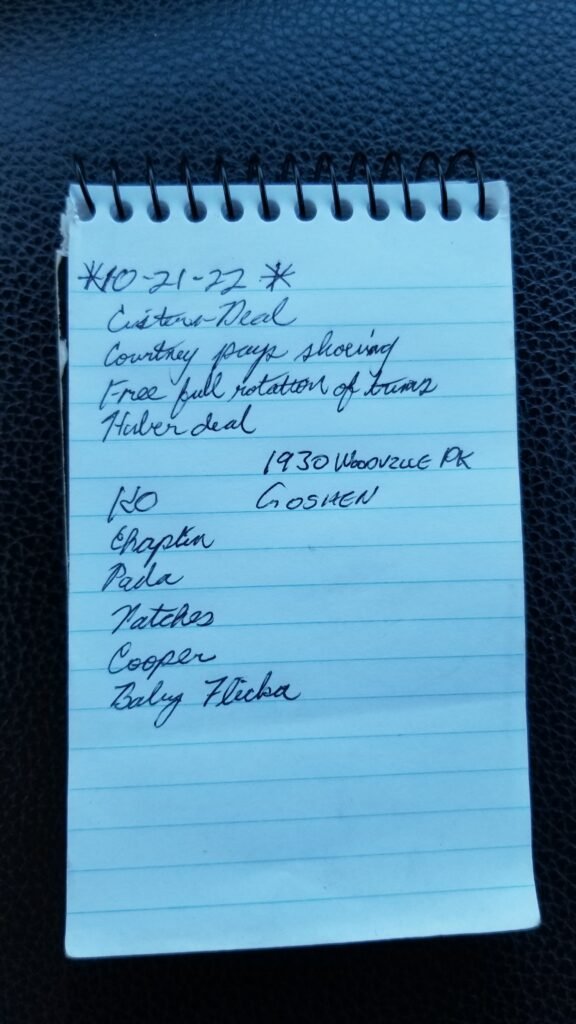 *10-21-22*
Cistern Deal
Courtney pays shoeing
Free full rotation of trims
Huber deal
1930 Woodville PK
KO GOSHEN
Chaplin
Pada
Natches
Cooper
Baby Flicka